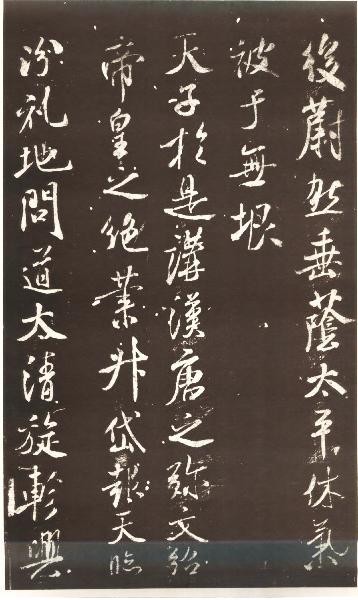 後蔚然垂蔭太平休氣
被于無垠
天子於是講漢唐之弥文紹
帝皇之絶業升岱報天臨
汾礼地問道太清旋軫興